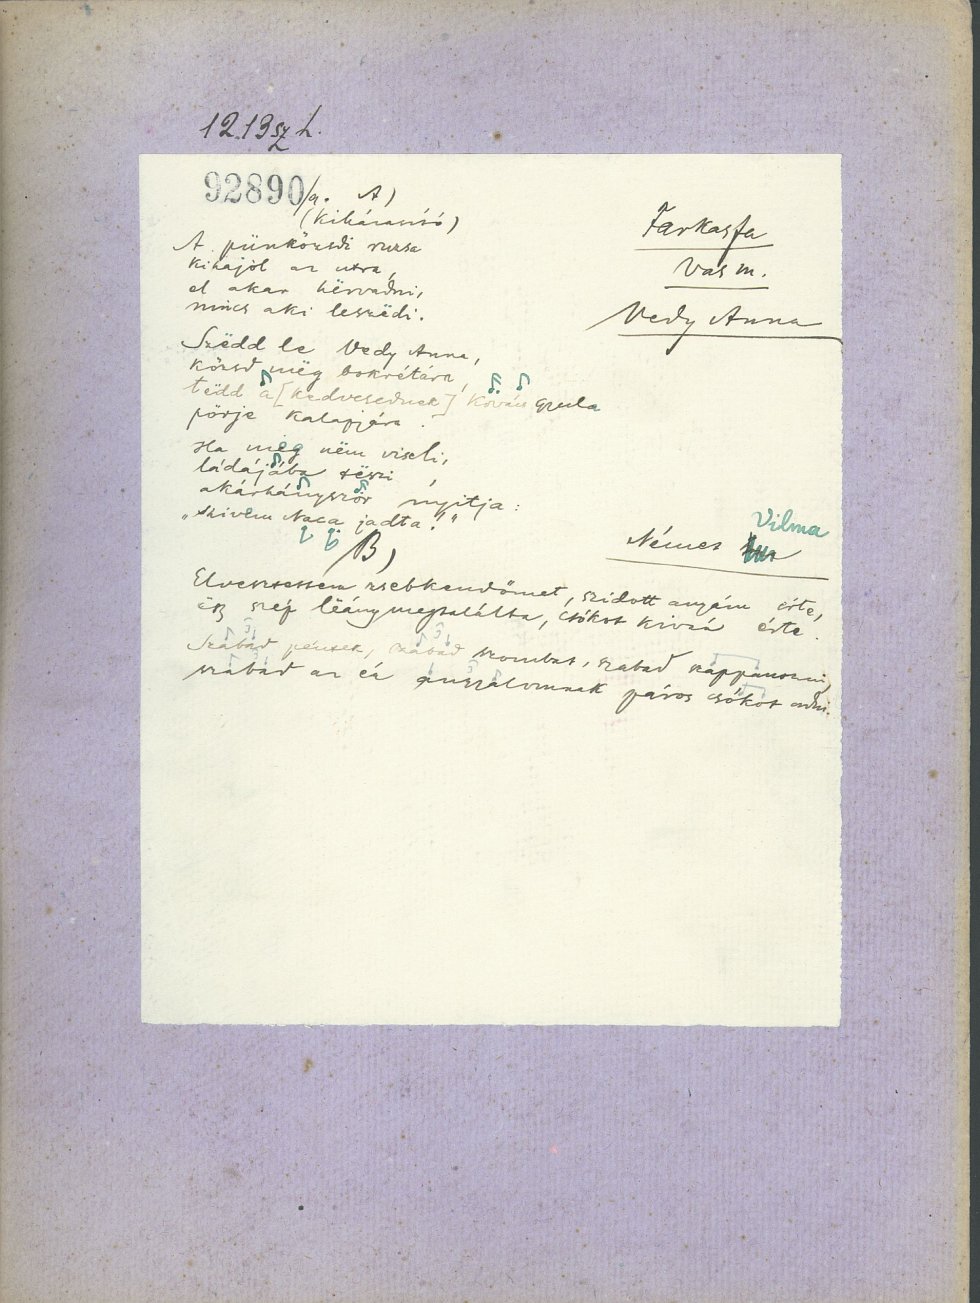 12.13 sz h.
92890/a. A)
(Kiházasító)
Farkasfa
Vas m.
Vedy Anna
A pünközsdi ruzsa
kihajol az utra,
el akar hërvadni,
nincs aki leszëdi.
Szëdd le Vedy Anna,
közsd mëg bokrétára,
tëdd a [kedvesednek] Kován Gyula
pörje kalapjára.
Ha mëg nëm viseli,
ládájába tëszi,
akárhányször nyitja:
„szivem Naca jadta!"
B)
Német Vilma
Elvesztettem zsebkendőmet, szidott anyám érte,
ëgy szép lëány megtalálta, csókot kiván érte.
Szabad péntek, szabad szombat, szabad szappanozni,
szabad az én páros csókot adni.